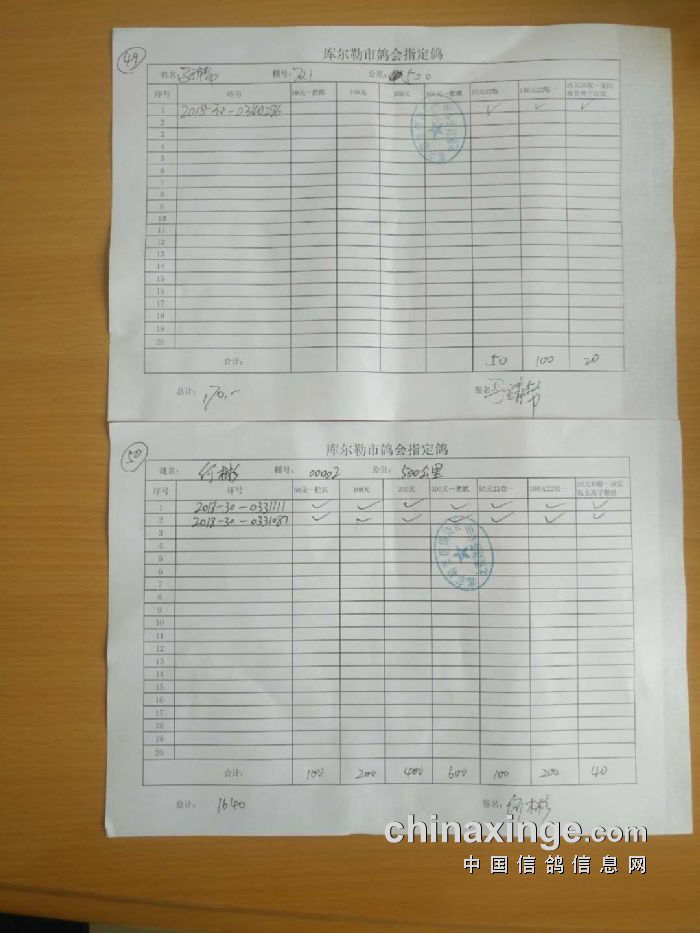 49
库尔勒市鸽会指定鸽
姓名: 棚号: 公里: 500
序号 环号 50元一把抓 100元 200元 300元一把抓 50元22取一 100元22取一
1 2018-30-0340296 ✓ ✓ ✓
2
3
4
5
6
7
8
9
10
11
12
13
14
15
16
17
18
19
20
合计: 50 100 20
总计: 170.- 签名
50
库尔勒市鸽会指定鸽
姓名: 何彬 棚号: 00002 公里: 500公里
序号 环号 50元一把抓 100元 200元 300元一把抓 50元22取一 100元22取一
1 2018-30-0331111 ✓ ✓ ✓ ✓ ✓ ✓ ✓
2 2018-30-0331087 ✓ ✓ ✓ ✓ ✓ ✓ ✓
3
4
5
6
7
8
9
10
11
12
13
14
15
16
17
18
19
20
合计: 100 200 400 600 100 200 40
总计: 1640 签名: 何彬
chinaxinge.com
中国信鸽信息网